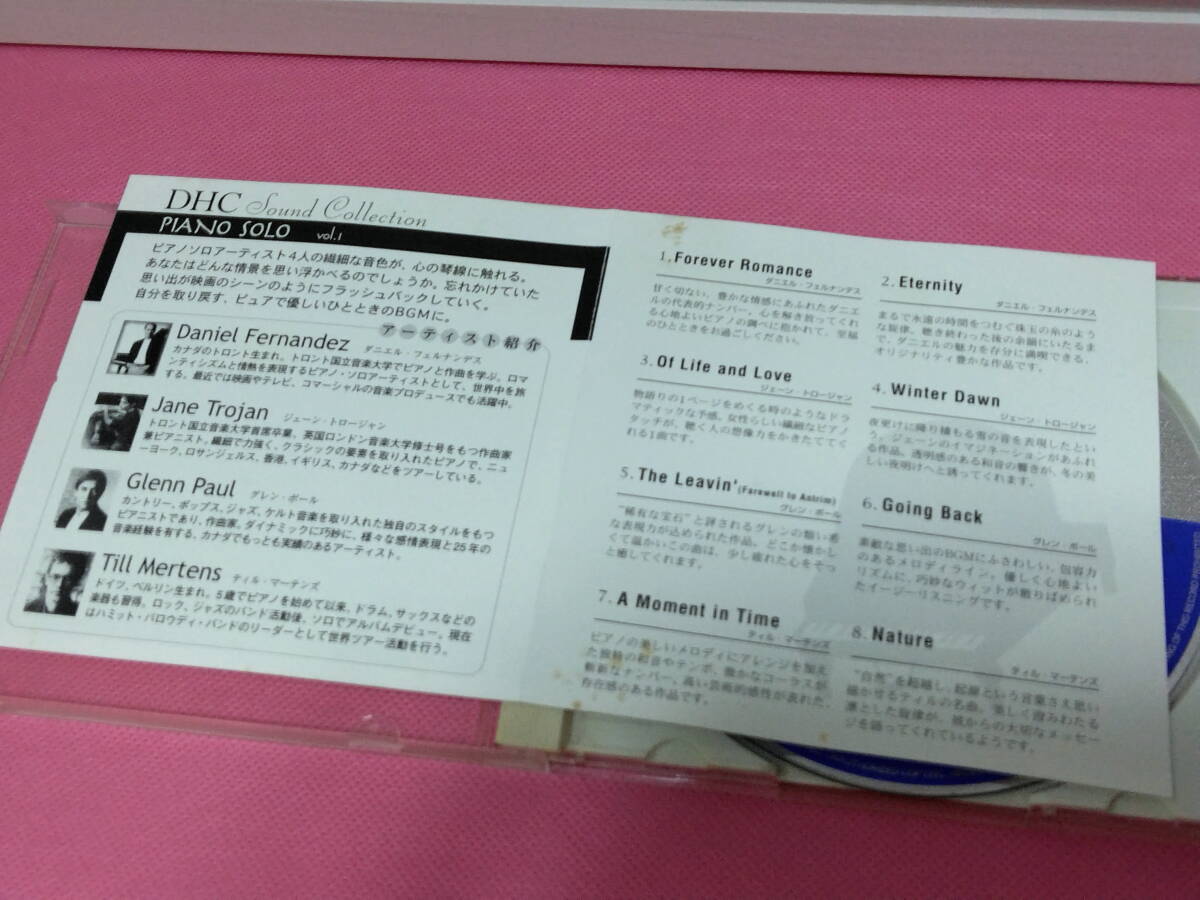 DHC Sound Collection
PIANO SOLO vol.1
ピアノソロアーティスト4人の繊細な音色が、心の琴線に触れる。
あなたはどんな情景を思い浮かべるのでしょうか。忘れかけていた
思い出が映画のシーンのようにフラッシュバックしていく。
自分を取り戻す、ピュアで優しいひとときのBGMに。
アーティスト紹介
Daniel Fernandez ダニエル・フェルナンデス
カナダのトロント生まれ。トロント国立音楽大学でピアノと作曲を学ぶ。ロマ
ンティシズムと情熱を表現するピアノ・ソロアーティストとして、世界中を旅
する。最近では映画やテレビ、コマーシャルの音楽プロデュースでも活躍中。
Jane Trojan ジェーン・トロージャン
トロント国立音楽大学首席卒業。英国ロンドン音楽大学修士号をもつ作曲家
兼ピアニスト。繊細で力強く、クラシックの要素を取り入れたピアノで、ニュ
ーヨーク、ロサンジェルス、香港、イギリス、カナダなどをツアーしている。
Glenn Paul グレン・ポール
カントリー、ポップス、ジャズ、ケルト音楽を取り入れた独自のスタイルをもつ
ピアニストであり、作曲家。ダイナミックに巧妙に、様々な感情表現と25年の
音楽経験を有する、カナダでもっとも実績のあるアーティスト。
Till Mertens ティル・マーテンズ
ドイツ、ベルリン生まれ。5歳でピアノを始めて以来、ドラム、サックスなどの
楽器も習得。ロック、ジャズのバンド活動後、ソロでアルバムデビュー。現在
はハミット・バロウディ・バンドのリーダーとして世界ツアー活動を行う。
1.Forever Romance
ダニエル・フェルナンデス
甘く切ない、豊かな情感にあふれたダニエ
ルの代表的ナンバー。心を解き放ってくれ
る心地よいピアノの調べに抱かれて、至福
のひとときをお過ごしください。
2.Eternity
ダニエル・フェルナンデス
まるで永遠の時間をつむぐ珠玉の糸のよう
な旋律。聴き終わった後の余韻にいたるま
で、ダニエルの魅力を存分に満喫できる、
オリジナリティ豊かな作品です。
3.Of Life and Love
ジェーン・トロージャン
物語りの1ページをめくる時のようなドラ
マティックな予感。女性らしい繊細なピアノ
タッチが、聴く人の想像力をかきたててく
れる1曲です。
4.Winter Dawn
ジェーン・トロージャン
夜更けに降り積もる雪の音を表現したとい
う。ジェーンのイマジネーションがあふれ
る作品。透明感のある和音の響きが、冬の美
しい夜明けへと誘ってくれます。
5.The Leavin'(Farewell to Antrim)
グレン・ポール
"稀有な宝石"と評されるグレンの類い希
な表現力が込められた作品。どこか懐かし
くて温かいこの曲は、少し疲れた心をそっ
と癒してくれます。
6.Going Back
グレン・ポール
素敵な思い出のBGMにふさわしい、包容力
のあるメロディライン。優しく心地よい
リズムに、巧妙なウィットが散りばめられ
たイージーリスニングです。
7.A Moment in Time
ティル・マーテンズ
ピアノの美しいメロディにアレンジを加え
た独特の和音やテンポ、微かなコーラスが
斬新なナンバー。高い芸術的感性が表れた、
存在感のある作品です。
8.Nature
ティル・マーテンズ
"自然"を超越し、起源という言葉さえ思い
描かせるティルの名曲。美しく澄みわたる
凛とした旋律が、彼からの大切なメッセー
ジを語ってくれているようです。